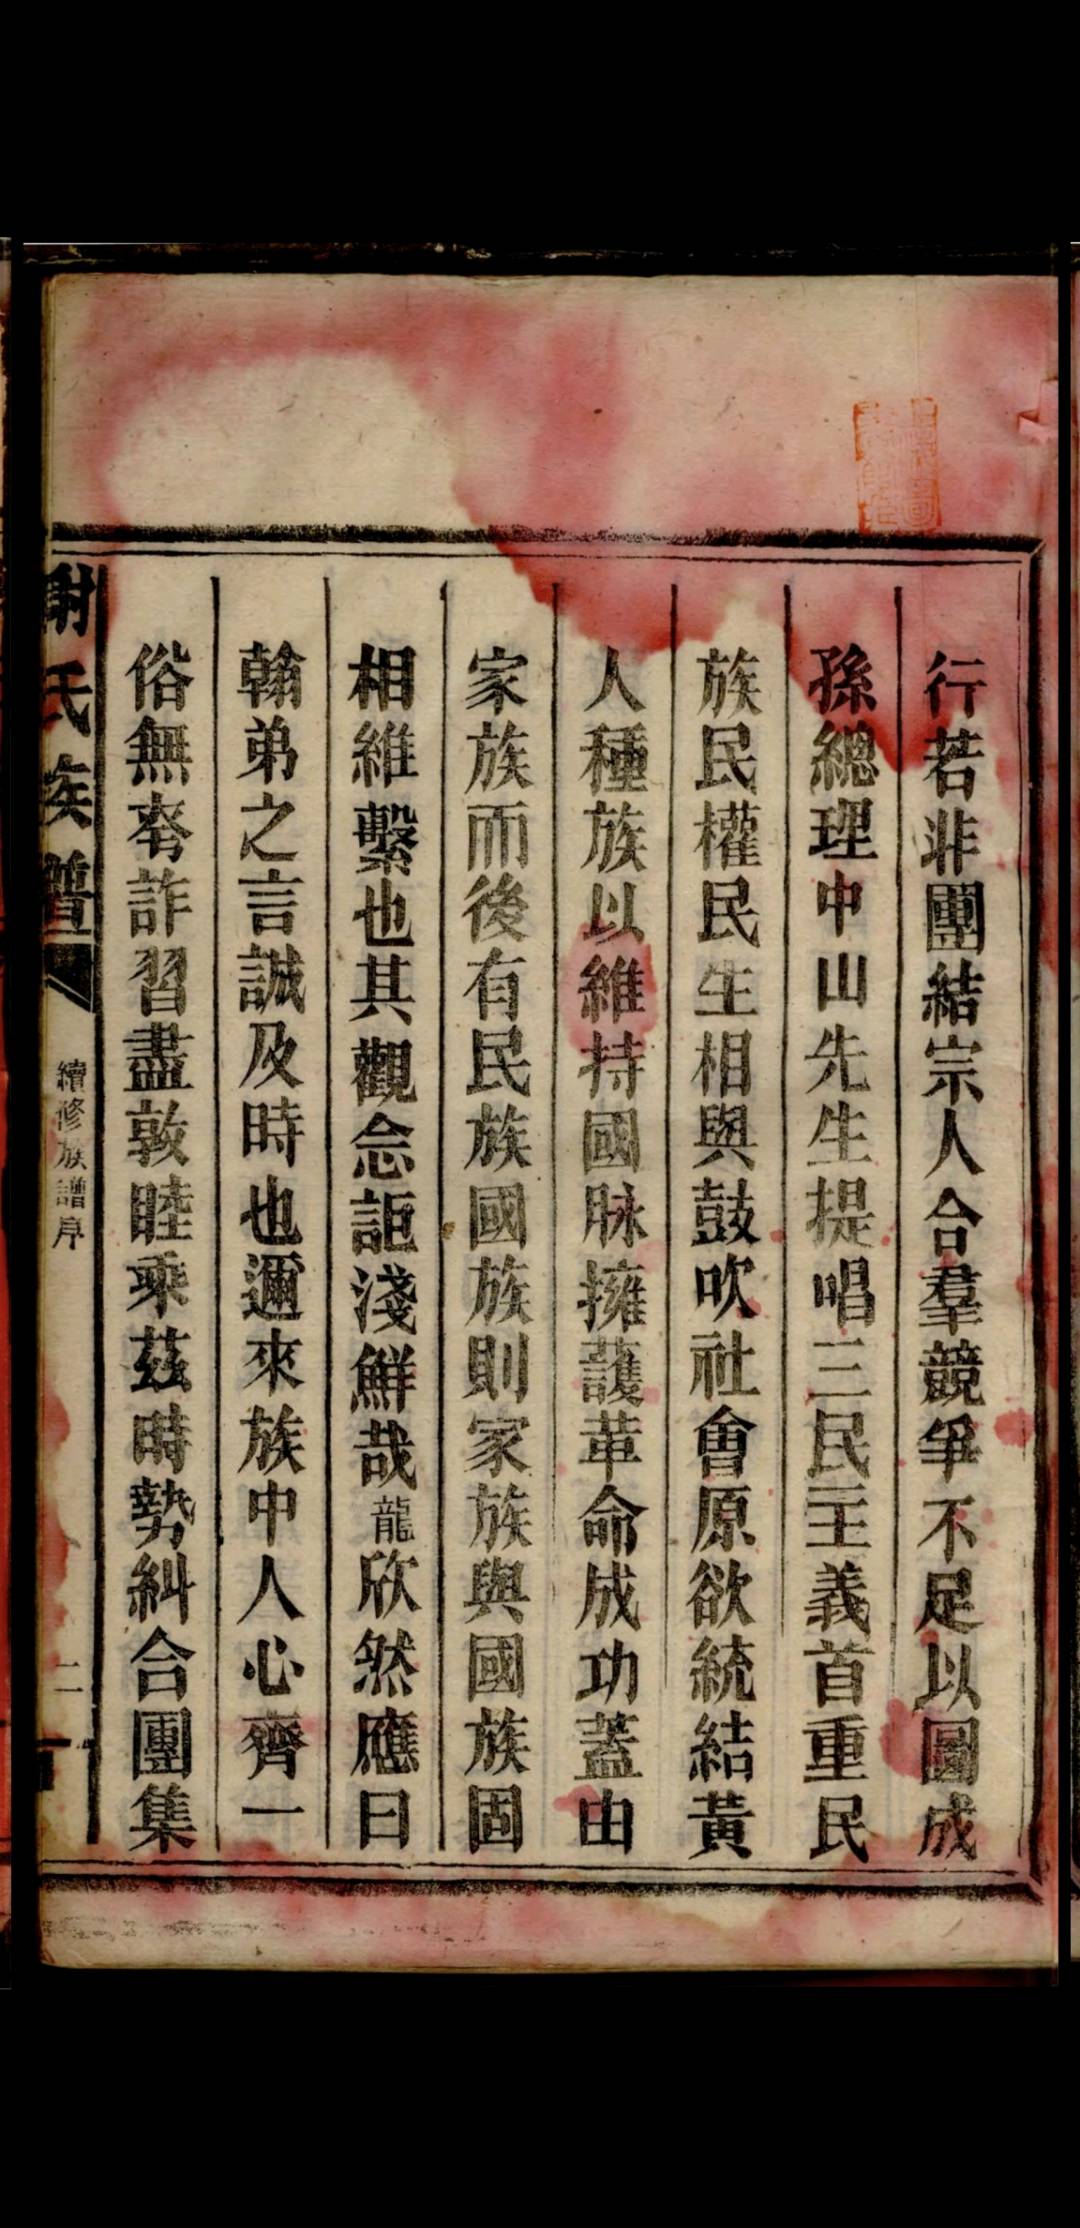 行若非團結宗人合羣競爭不足以圖成
孫總理中山先生提唱三民主義首重民
族民權民生相與鼓吹社會原欲統結黃
人種族以維持國脉擁護革命成功蓋由
家族而後有民族國族則家族與國族固
相維繫也其觀念詎淺鮮哉龍欣然應曰
翰弟之言誠及時也邇來族中人心齊一
俗無夸詐習盡敦睦乘茲時勢糾合團集
謝氏族譜
續修族譜序
二